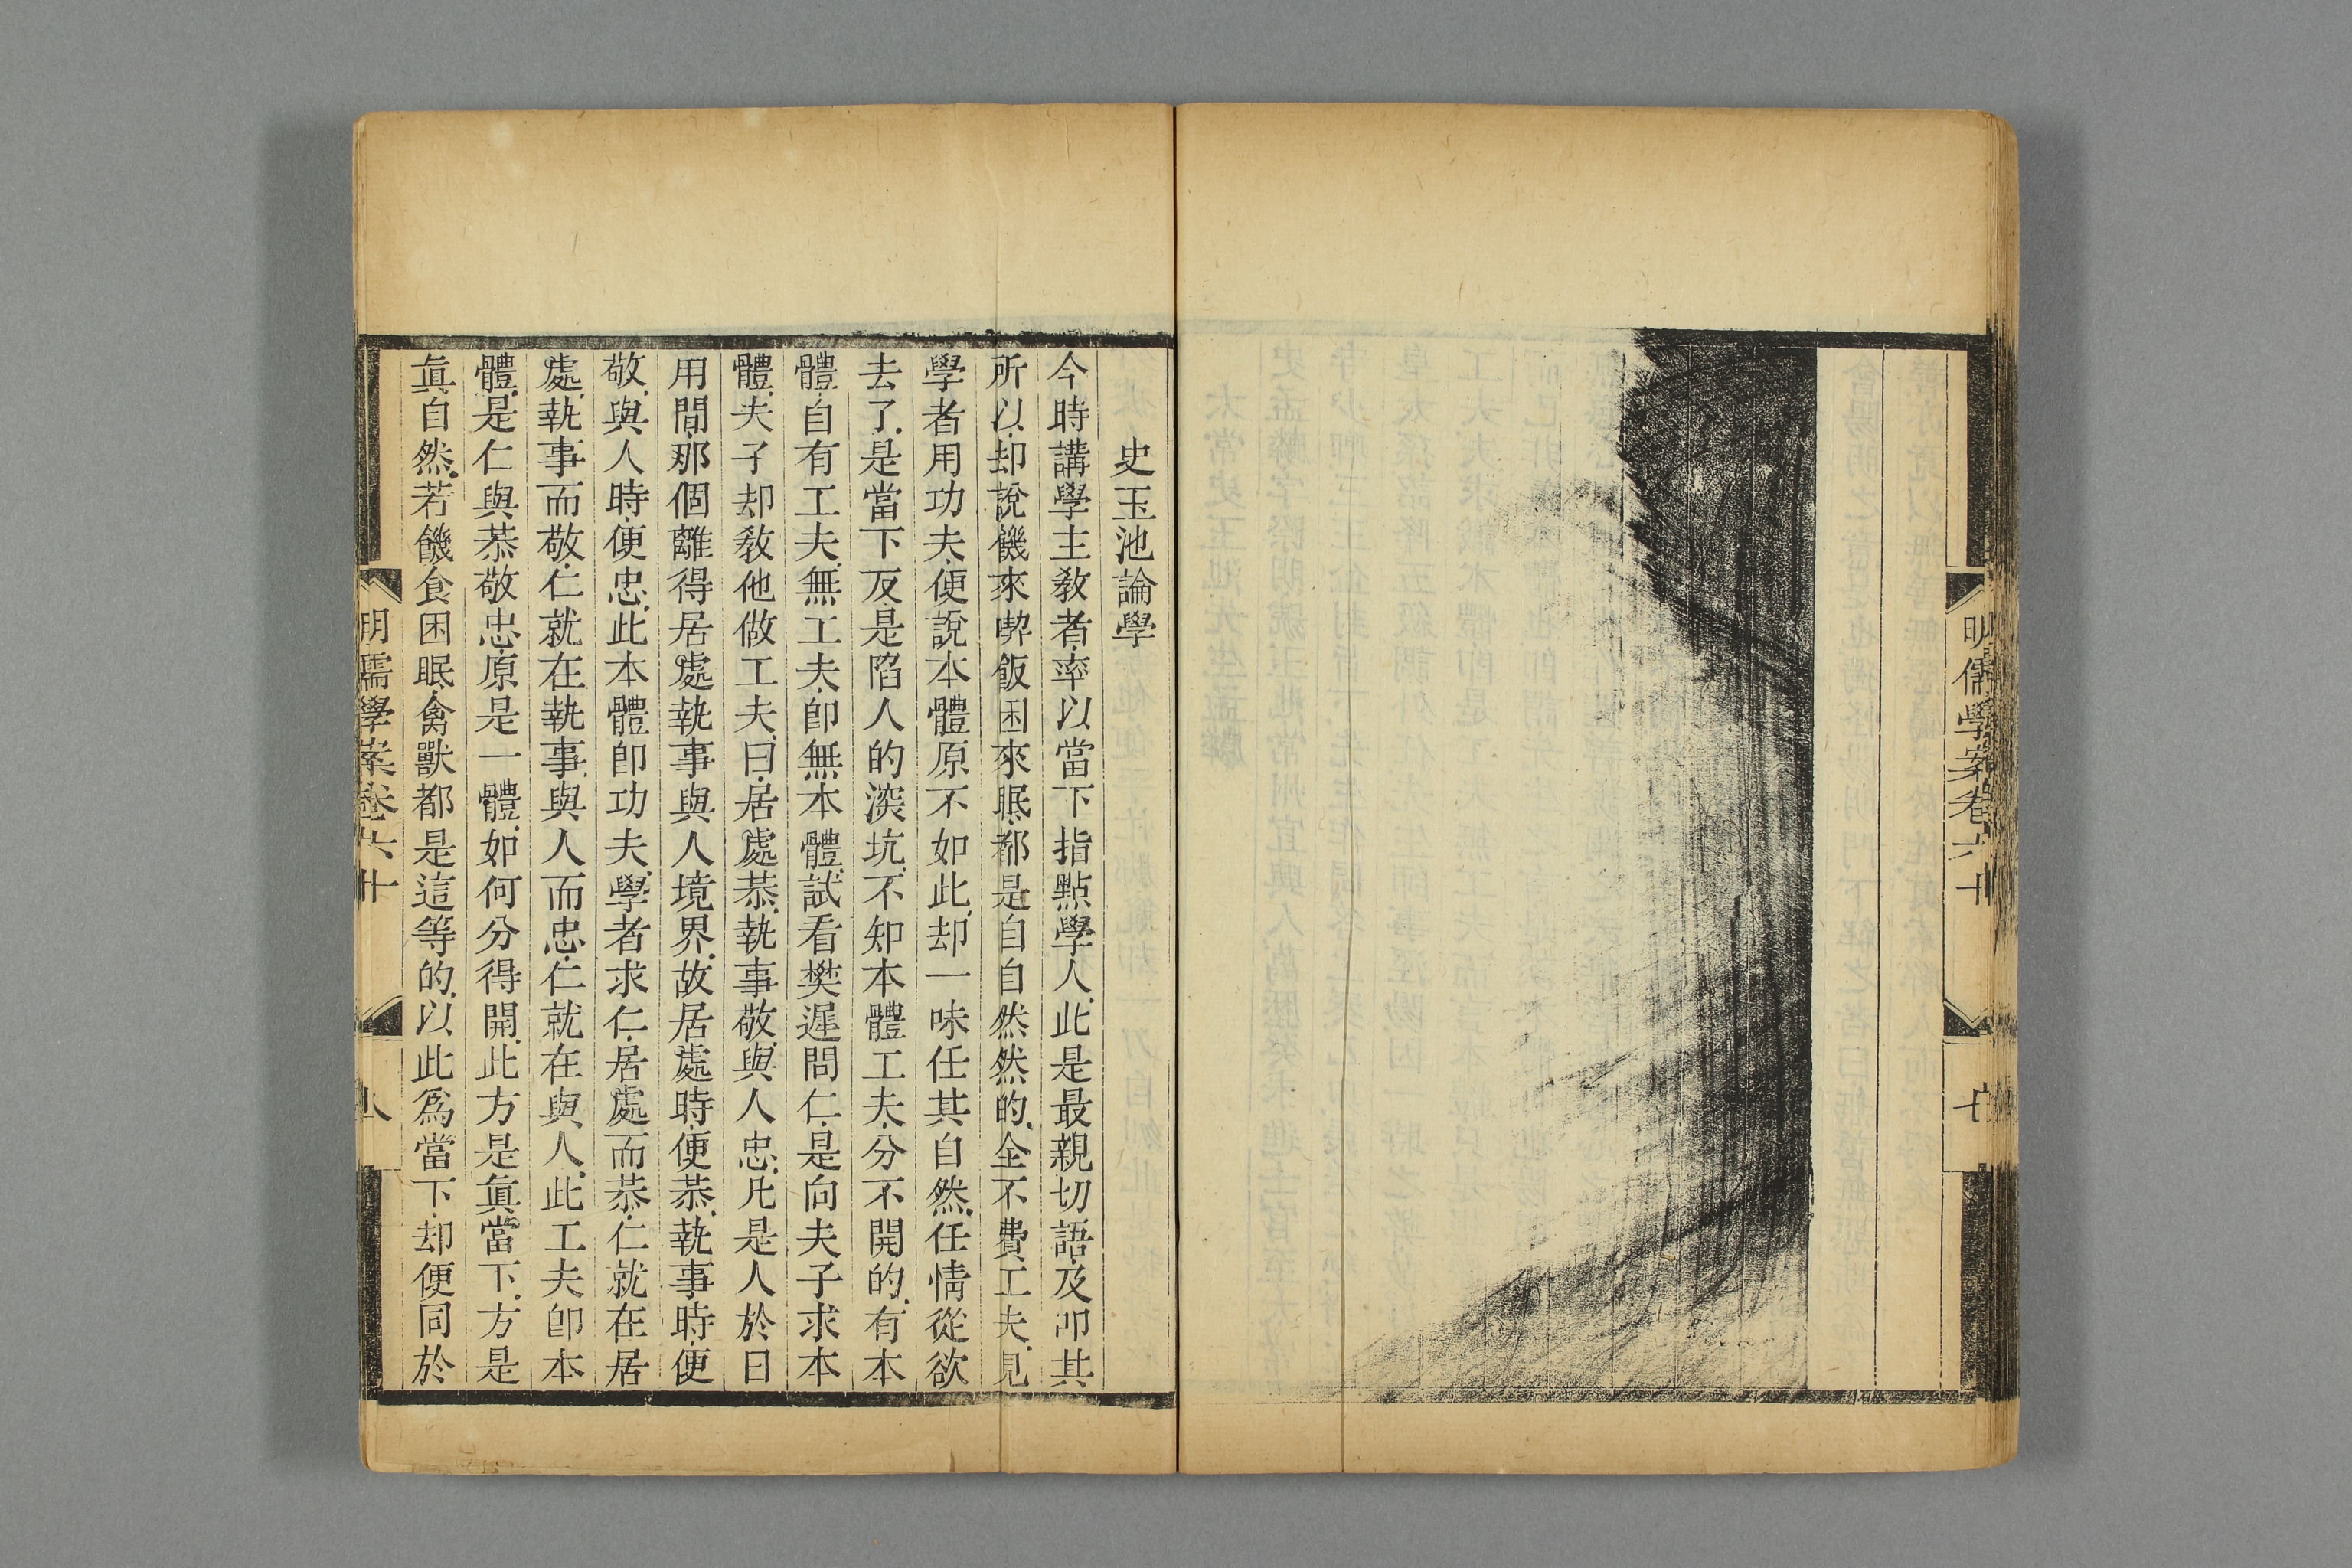 明儒學案卷六十
七
史玉池論學
今時講學主敎者率以當下指點學人此是最親切語及叩其
所以却說饑來喫飯困來眠都是自自然然的全不費工夫見
學者用功夫便說本體原不如此却一味任其自然任情從欲
去了是當下反是陷人的深坑不知本體工夫分不開的有本
體自有工夫無工夫卽無本體試看樊遲問仁是向夫子求本
體夫子却敎他做工夫曰居處恭執事敬與人忠凡是人於日
用間那個離得居處執事與人境界故居處時便恭執事時便
敬與人時便忠此本體卽功夫學者求仁居處而恭仁就在居
處執事而敬仁就在執事與人而忠仁就在與人此工夫卽本
體是仁與恭敬忠原是一體如何分得開此方是眞當下方是
眞自然若饑食困眠禽獸都是這等的以此爲當下却便同於
明儒學案卷六十
八